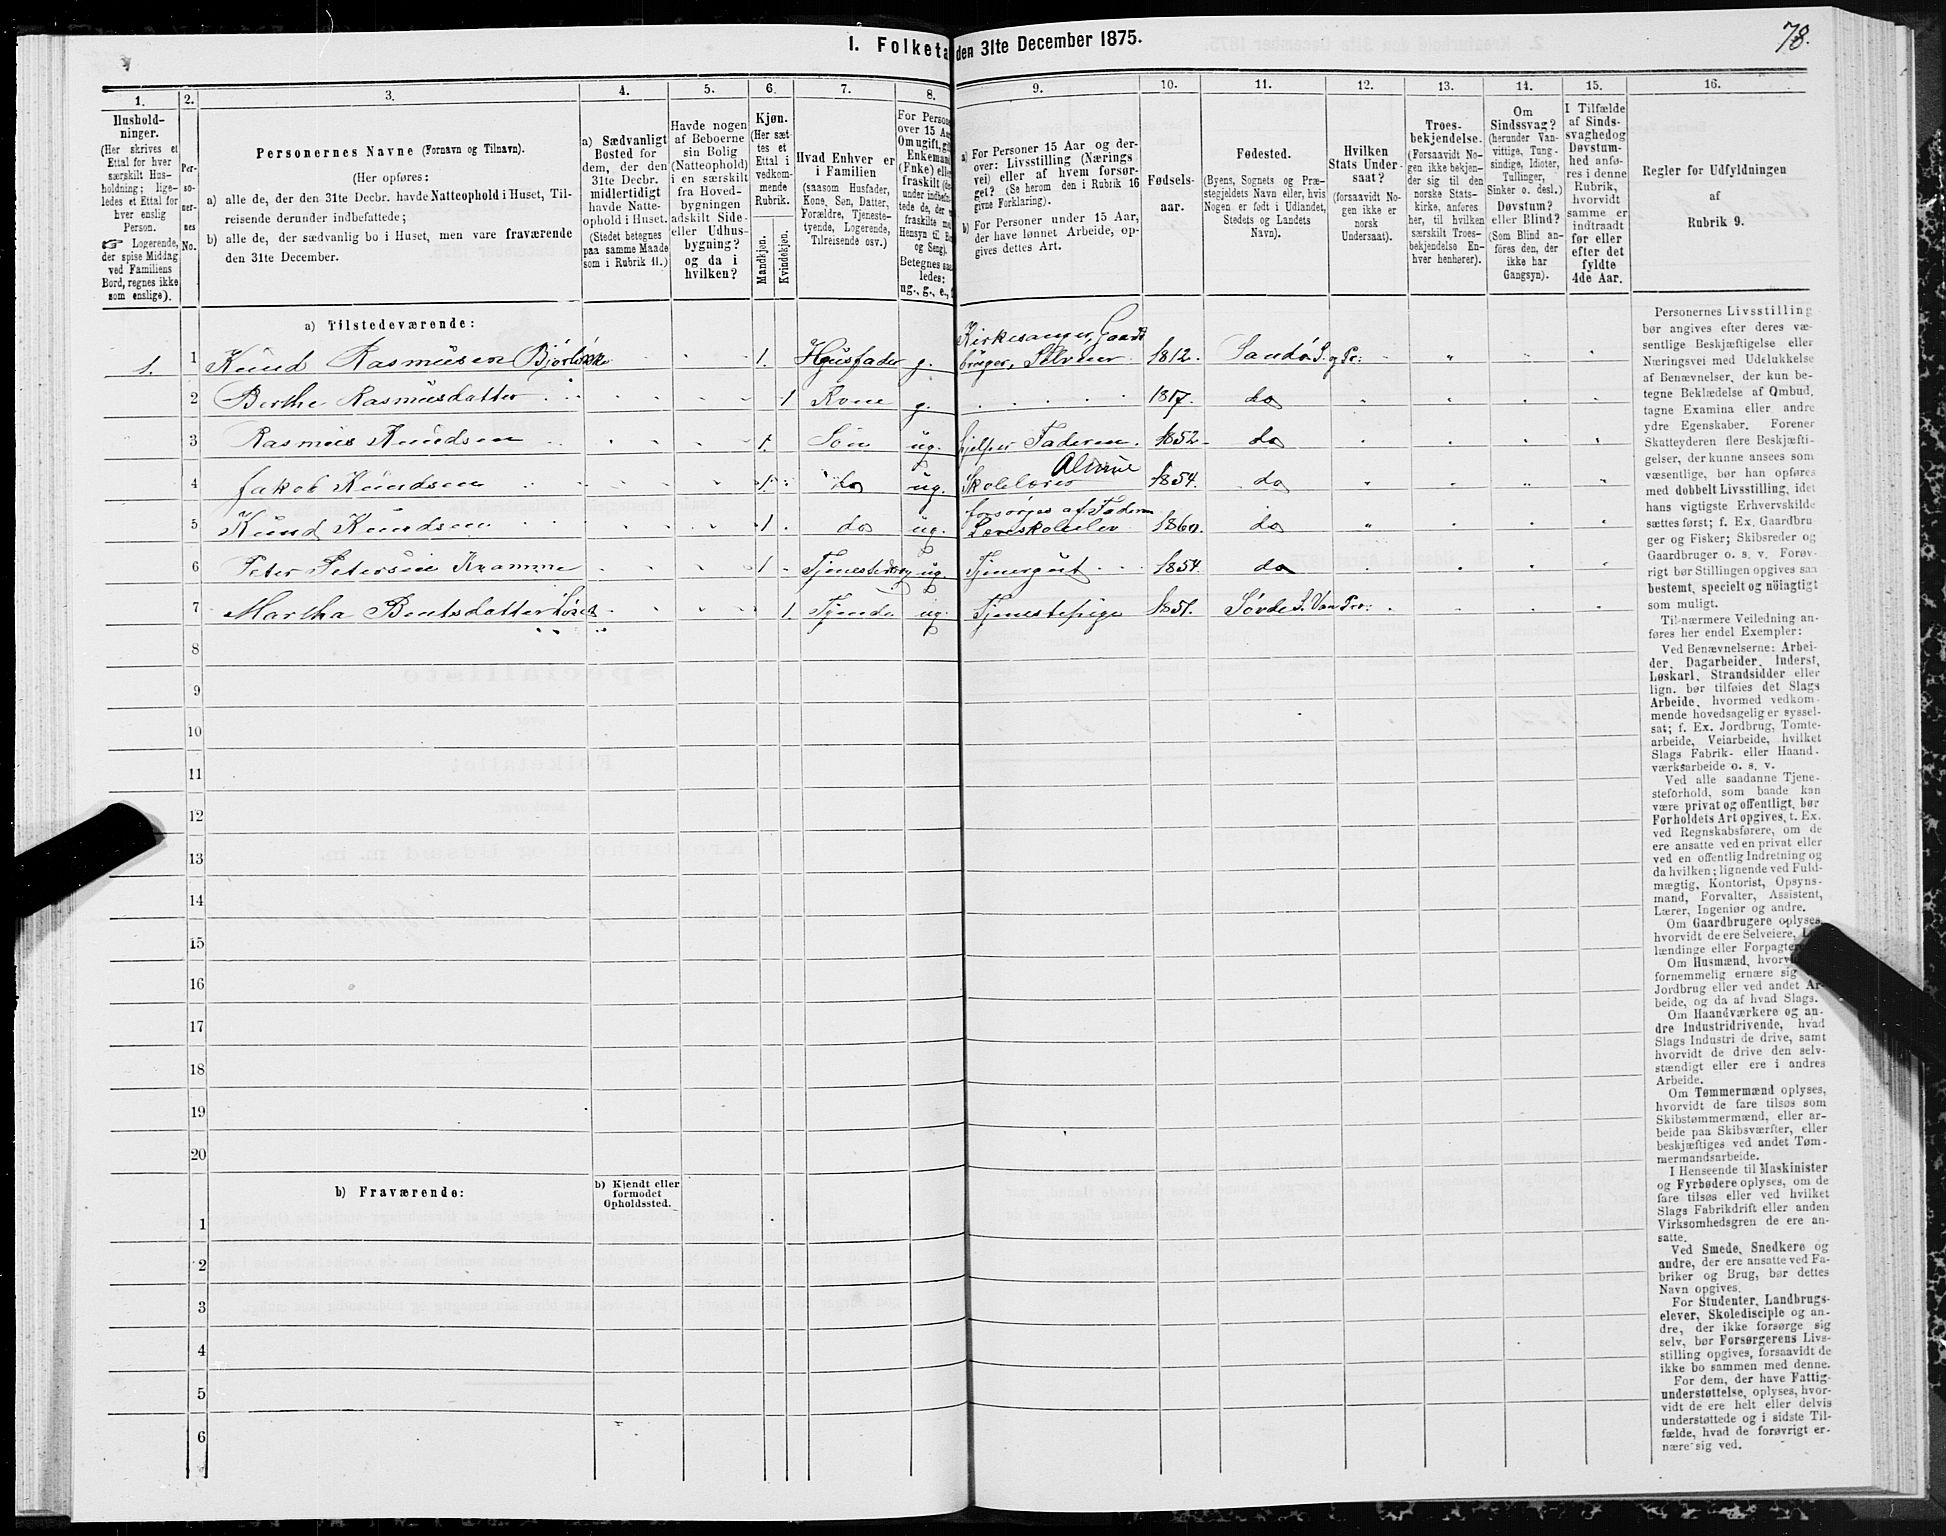 78.
1. Folketa den 31te December 1875.
1. 2. 3. 4. 5. 6. 7. 8. 9. 10. 11. 12. 13. 14. 15. 16.
Hushold-
ninger.
(Her skrives et
Ettal for hver
særskilt Hus-
holdning; lige-
ledes et Ettal for
hver enslig
Person.
☞ Logerende,
der spise Middag
ved Familiens
Bord, regnes ikke
som enslige).
Per-
so-
ner-
nes
No.
Personernes Navne (Fornavn og Tilnavn).
(Her opføres:
a) alle de, der den 31te Decbr. havde Natteophold i Huset, Til-
reisende derunder indbefattede;
b) alle de, der sædvanlig bo i Huset, men vare fraværende
den 31te December.
a) Sædvanligt
Bosted for
dem, der den
31te Decbr.
midlertidigt
havde Natte-
ophold i Huset.
(Stedet betegnes
paa samme Maade
som i Rubrik 11.)
Havde nogen
af Beboerne
sin Bolig
(Natteophold)
i en særskilt
fra Hoved-
bygningen
adskilt Side-
eller Udhus-
bygning?
og da i
hvilken?
Kjøn.
(Her sæt-
tes et
Ettal i
vedkom-
mende
Rubrik.
Mandkjøn.
Kvindekjøn.
Hvad Enhver er
i Familien
(saasom Husfader,
Kone, Søn, Datter,
Forældre, Tjeneste-
tyende, Logerende,
Tilreisende osv.)
For Person
over 15 Aa
Om ugift, gi
Enkemand
(Enke) elle
fraskilt (de
under indbefat-
tede de, der v
fraskilte med
Hensyn til Bo
og Seng).
Betegnes saa
ledes:
ug., g., e.,
a) For Personer 15 Aar og der-
over: Livsstilling (Nærings
vei) eller af hvem forsør-
get? (Se herom den i Rubrik 16
givne Forklaring).
b) For Personer under 15 Aar,
der have lønnet Arbeide, op-
gives dettes Art.
Fødsels-
aar.
Fødested.
(Byens, Sognets og Præ-
stegjeldets Navn eller, hvis
Nogen er født i Udlandet,
Stedets og Landets
Navn).
Hvilken
Stats Under-
saat?
(forsaavidt No-
gen ikke er
norsk
Undersaat).
Troes-
bekjendelse.
(Forsaavidt No-
gen ikke bekjen-
der sig til den
norske Stats-
kirke, anføres
her, til hvilken
særskilt Troes-
bekjendelse En-
hver henhører).
Om
Sindssvag?
(herunder Van-
vittige, Tung-
sindige, Idioter,
Tullinger,
Sinker o. desl.)
Døvstum?
eller Blind?
(Som Blind an-
føres den, der
ikke har
Gangsyn).
I Tilfælde
af Sinds-
svaghed og
Døvstum-
hed anfø-
res i denne
Rubrik,
hvorvidt
samme er
indtraadt
før eller
efter det
fyldte
4de Aar.
Regler for Udfyldningen
af
Rubrik 9.
a) Tilstedeværende:
1. 1 Knud Rasmusen Bjørlykke 1. Husfader g. Kirkesanger, Gaard
bruger, Selveier 1812. Sandø S. og Pr:
2 Berthe Rasmusdatter 1 Kone g. 1817. do
3 Rasmus Knudsen 1. Søn ug. hjelper Faderen. 1852. do
4 Jakob Knudsen 1. do ug. Skolelærer Almue 1854. do
5 Knud Knudsen 1. do ug. forsørges af Faderen
1860. do
6 Peter Petersen Kramme 1 ug. Tjenergut 1854. do
7 Martha Bentsdatter 1. Tjende ug. Tjenestepige 1851. Søvde S. Van Pr:
8
9
10
11
12
13
14
15
16
17
18
19
20
b) Fraværende:
b) Kjendt eller
formodet
Opholdssted.
1
2
3
4
5
6
Personernes Livsstilling
bør angives efter deres væ-
sentlige Beskjæftigelse eller
Næringsvei med Udelukkelse
af Benævnelser, der kun be-
tegne Beklædelse af Ombud,
tagne Examina eller andre
ydre Egenskaber. Forener
Skatteyderen flere Beskjæfti-
gelser, der kunne ansees som
væsentlige, bør han opføres
med dobbelt Livsstilling, idet
hans vigtigste Erhvervskilde
sættes først; f. Ex. Gaardbru-
ger og Fisker; Skibsreder og
Gaardbruger o. s. v. Forøv-
rigt bør Stillingen opgives saa
bestemt, specielt og nöiagtigt
som muligt.
Til nærmere Veiledning an-
føres her endel Exempler:
Ved Benævnelserne: Arbei-
der, Dagarbeider, Inderst,
Løskarl, Strandsidder eller
lign. bør tilføies det Slags
Arbeide, hvormed vedkom-
mende hovedsagelig er syssel-
sat; f. Ex. Jordbrug, Tomte-
arbeide, Veiarbeide, hvilket
Slags Fabrik- eller Haand-
værksarbeide o. s. v.
Ved alle saadanne Tjene-
steforhold, som baade kan
være privat og offentligt, bør
Forholdets Art opgives, t. Ex.
ved Regnskabsførere, om de
ere ansatte ved en privat eller
ved en offentlig Indretning og
da hvilken; lignende ved Fuld-
mægtig, Kontorist, Opsyns-
mand, Forvalter, Assistent,
Lærer, Ingeniør og andre.
Om Gaardbrugere oplyses,
hvorvidt de ere Selveiere,
lændinge eller Forpagtere
Om Husmænd,
fornemmelig ernære sig
Jordbrug eller ved andet Ar-
beide, og da af hvad Slags.
Om Haandværkere og an-
dre Industridrivende, hvad
Slags Industri de drive, samt
hvorvidt de drive den selv-
stændigt eller ere i andres
Arbeide.
Om Tømmermænd oplyses,
hvorvidt de fare tilsøs som
Skibstømmermænd, eller ar-
beide paa Skibsværfter, eller
beskjæftiges ved andet Tøm-
mermandsarbeide.
I Henseende til Maskinister
og Fyrbødere oplyses, om de
fare tilsøs eller ved hvilket
Slags Fabrikdrift eller anden
Virksomhedsgren de ere an-
satte.
Ved Smede, Snedkere og
andre, der ere ansatte ved Fa-
briker og Brug, bør dettes
Navn opgives.
For Studenter, Landbrugs-
elever, Skoledisciple og an-
dre, der ikke forsørge sig
selv, bør Forsørgerens Livs-
stilling opgives, forsaavidt de
ikke bo sammen med denne.
For dem, der have Fattig-
understøttelse, oplyses, hvor-
vidt de ere helt eller delvis
understøttede og i sidste Til-
fælde, hvad de forøvrigt er-
nære sig ved.